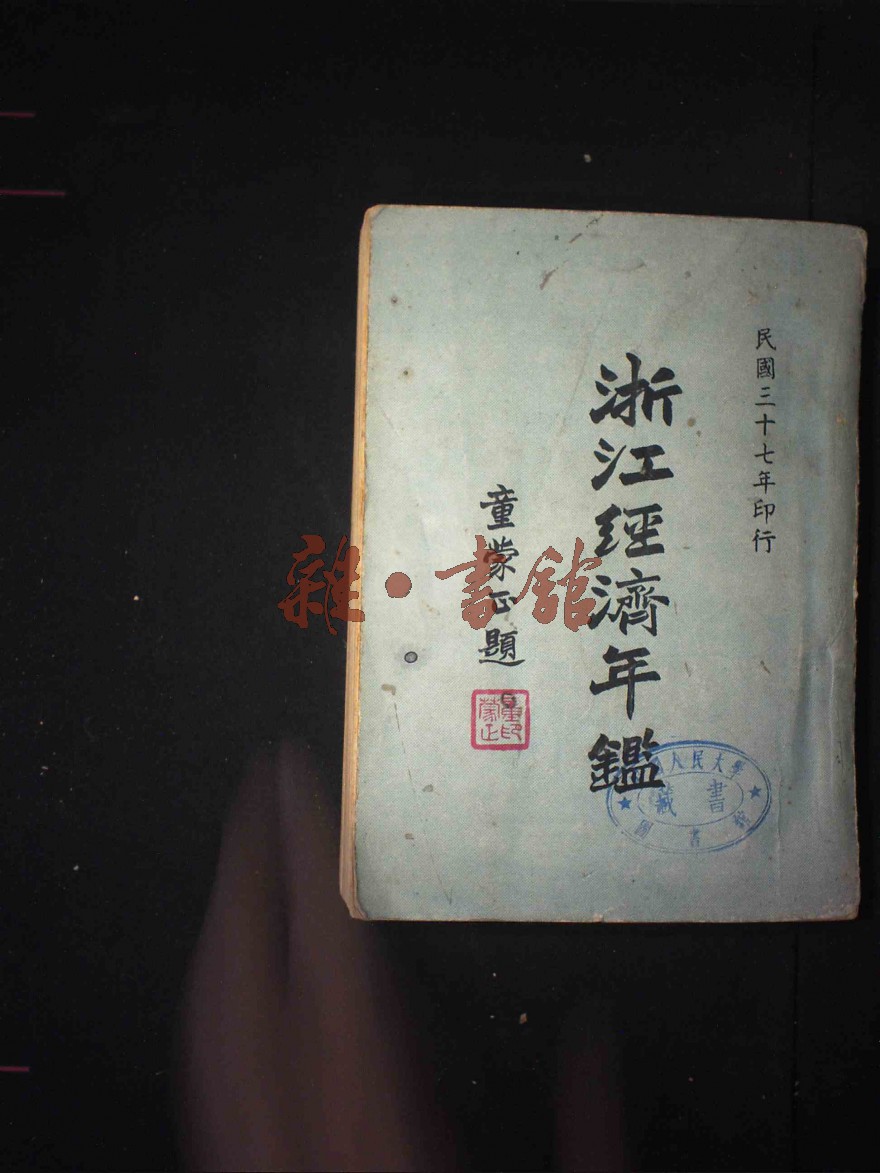 民國三十七年印行
浙江經濟年鑑
童蒙正題
童印
蒙正
人民大學
藏書
圖書館
雜·書館